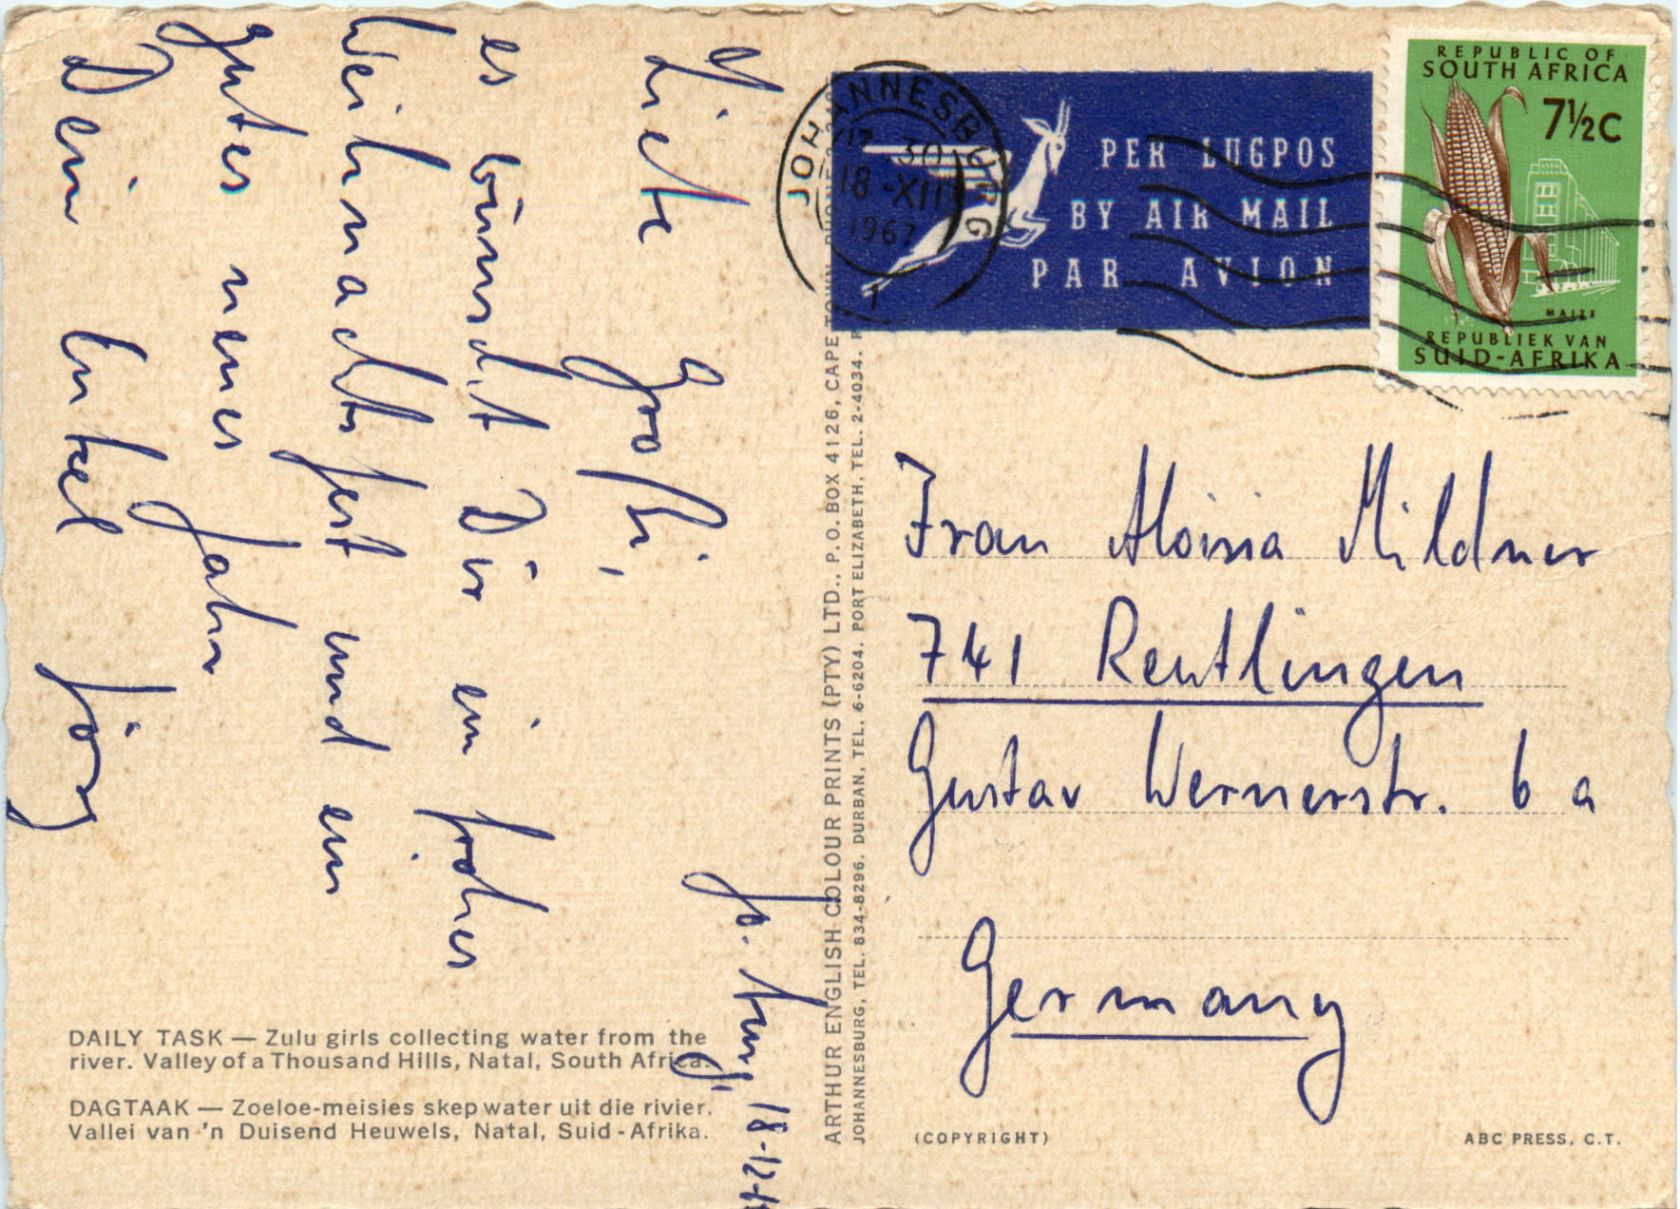 Jo. burg, 18-12-
Liebe Großi,
es wünscht Dir ein frohes
Weihnachtsfest und ein
gutes neues Jahr
Dein Enkel Jörg
DAILY TASK — Zulu girls collecting water from the
river. Valley of a Thousand Hills, Natal, South Africa.
DAGTAAK — Zoeloe-meisies skep water uit die rivier.
Vallei van 'n Duisend Heuwels, Natal, Suid-Afrika.
ARTHUR ENGLISH COLOUR PRINTS (PTY) LTD., P.O. BOX 4126, CAPE TOWN
JOHANNESBURG, TEL. 834-8296. DURBAN, TEL. 6-6204. PORT ELIZABETH, TEL. 2-4034.
JOHANNESBURG
12 30
18-XII
1967
1
PER LUGPOS
BY AIR MAIL
PAR AVION
REPUBLIC OF
SOUTH AFRICA
7½C
MAIZE
REPUBLIEK VAN
SUID-AFRIKA
Frau Aloisia Mildner
741 Reutlingen
Gustav Wernerstr. 6 a
Germany
(COPYRIGHT)
ABC PRESS, C.T.